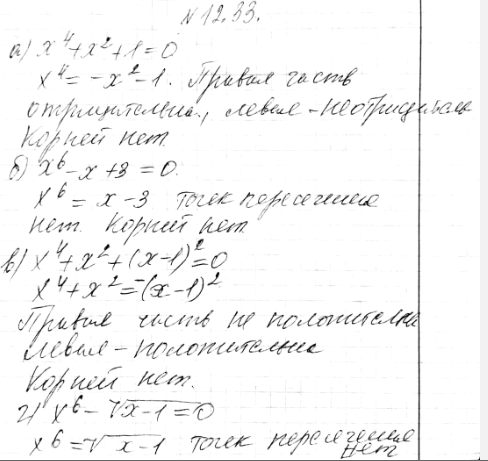 № 12.33.
а) x⁴+x²+1=0
x⁴=-x²-1. Правая часть
отрицательна, левая - неотрицательна
Корней нет.
б) x⁶-x+3=0.
x⁶=x-3 точек пересечения
нет. Корней нет
в) x⁴+x²+(x-1)²=0
x⁴+x²=-(x-1)²
Правая часть не положительна
левая - положительна
Корней нет.
г) x⁶-√x-1=0
x⁶=√x-1 точек пересечения
нет